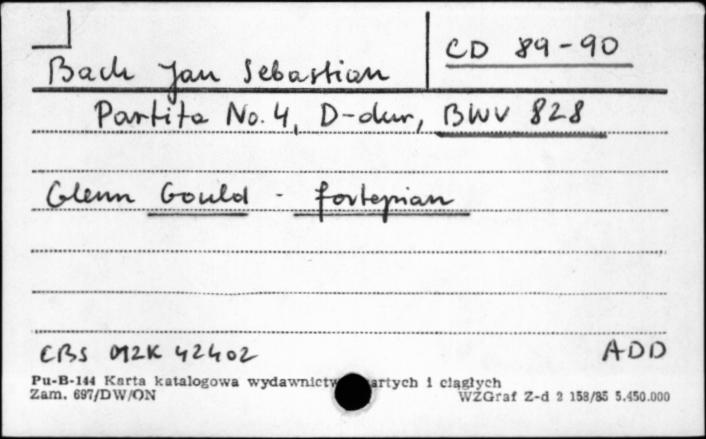 CD 89-90
Bach Jan Sebastian
Partita No. 4, D-dur, BWV 828
Glenn Gould - fortepian
CBS M2K 42402
ADD
Pu-B-144 Karta katalogowa wydawnictw artych i ciągłych
Zam. 697/DW/ON
WZGraf Z-d 2 158/85 5.450.000